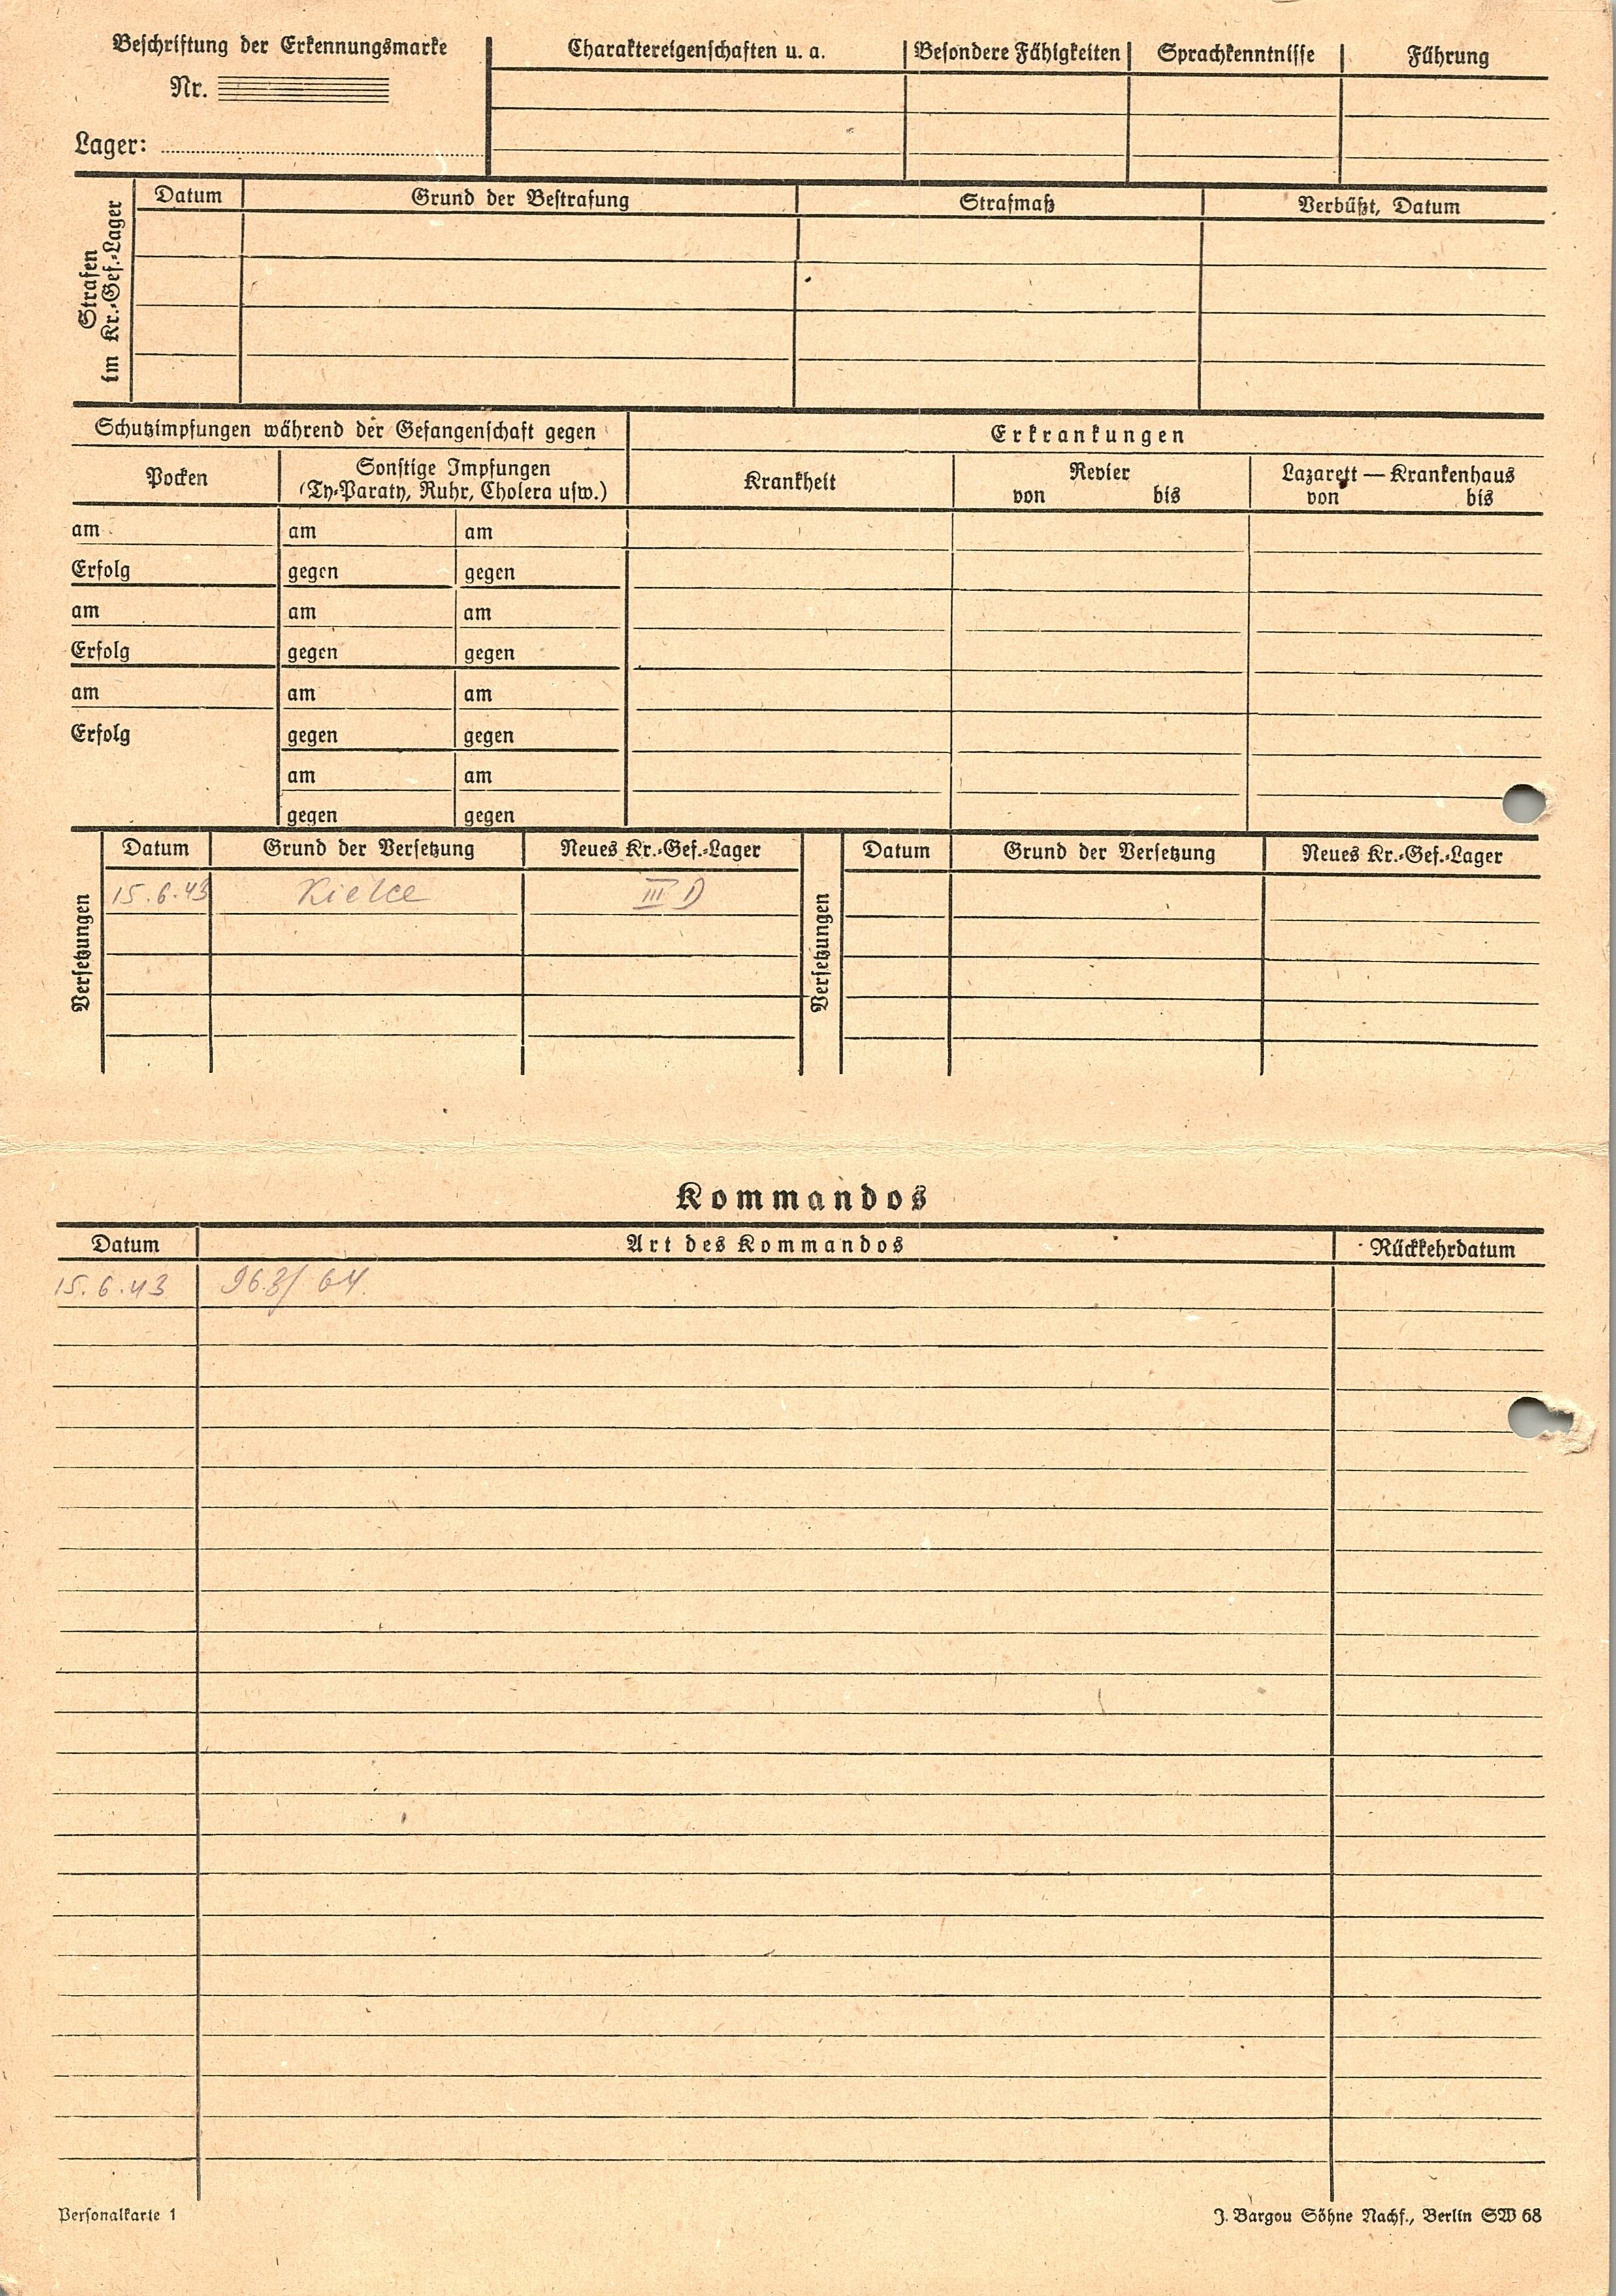 Beschriftung der Erkennungsmarke
Nr.
Lager:
Charaktereigenschaften u. a. Besondere Fähigkeiten Sprachkenntnisse Führung
Strafen
im Kr.-Gef.-Lager
Datum Grund der Bestrafung Strafmaß Verbüßt, Datum
Schutzimpfungen während der Gefangenschaft gegen
Pocken
Sonstige Impfungen
(Ty-Paraty, Ruhr, Cholera usw.)
am am am
Erfolg gegen gegen
am am am
Erfolg gegen gegen
am am am
Erfolg gegen gegen
am am
gegen gegen
Erkrankungen
Krankheit
Revier
von bis
Lazarett — Krankenhaus
von bis
Versetzungen
Datum Grund der Versetzung Neues Kr.-Gef.-Lager
15.6.43 Kielce III D
Versetzungen
Datum Grund der Versetzung Neues Kr.-Gef.-Lager
Kommandos
Datum Art des Kommandos Rückkehrdatum
15.6.43 963/ 64.
Personalkarte 1
J. Bargou Söhne Nachf., Berlin SW 68